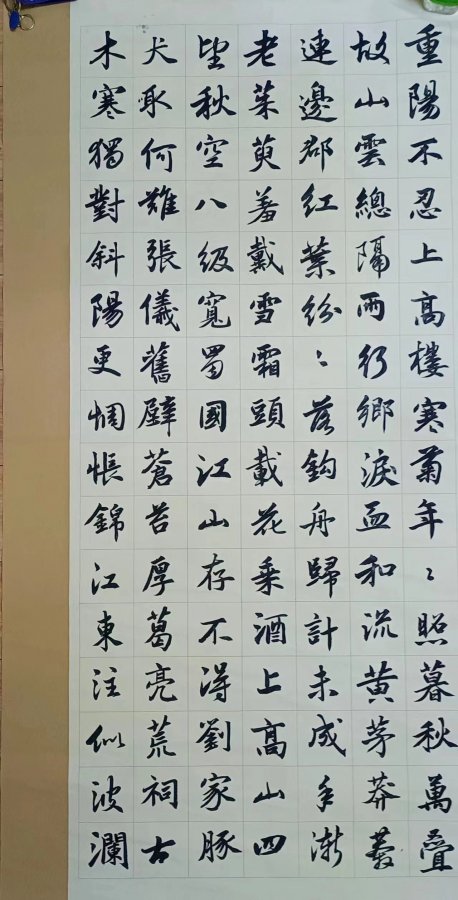 重陽不忍上高樓寒菊年〻照暮秋萬疊
故山雲總隔兩行鄉淚血和流黃茅莽莽
連邊郡紅葉紛〻落鈎舟歸計未成年漸
老茱萸羞戴雪霜頭載花乘酒上高山四
望秋空八級寬蜀國江山存不得劉家豚
犬取何難張儀舊壁蒼苔厚葛亮荒祠古
木寒獨對斜陽更惆悵錦江東注似波瀾